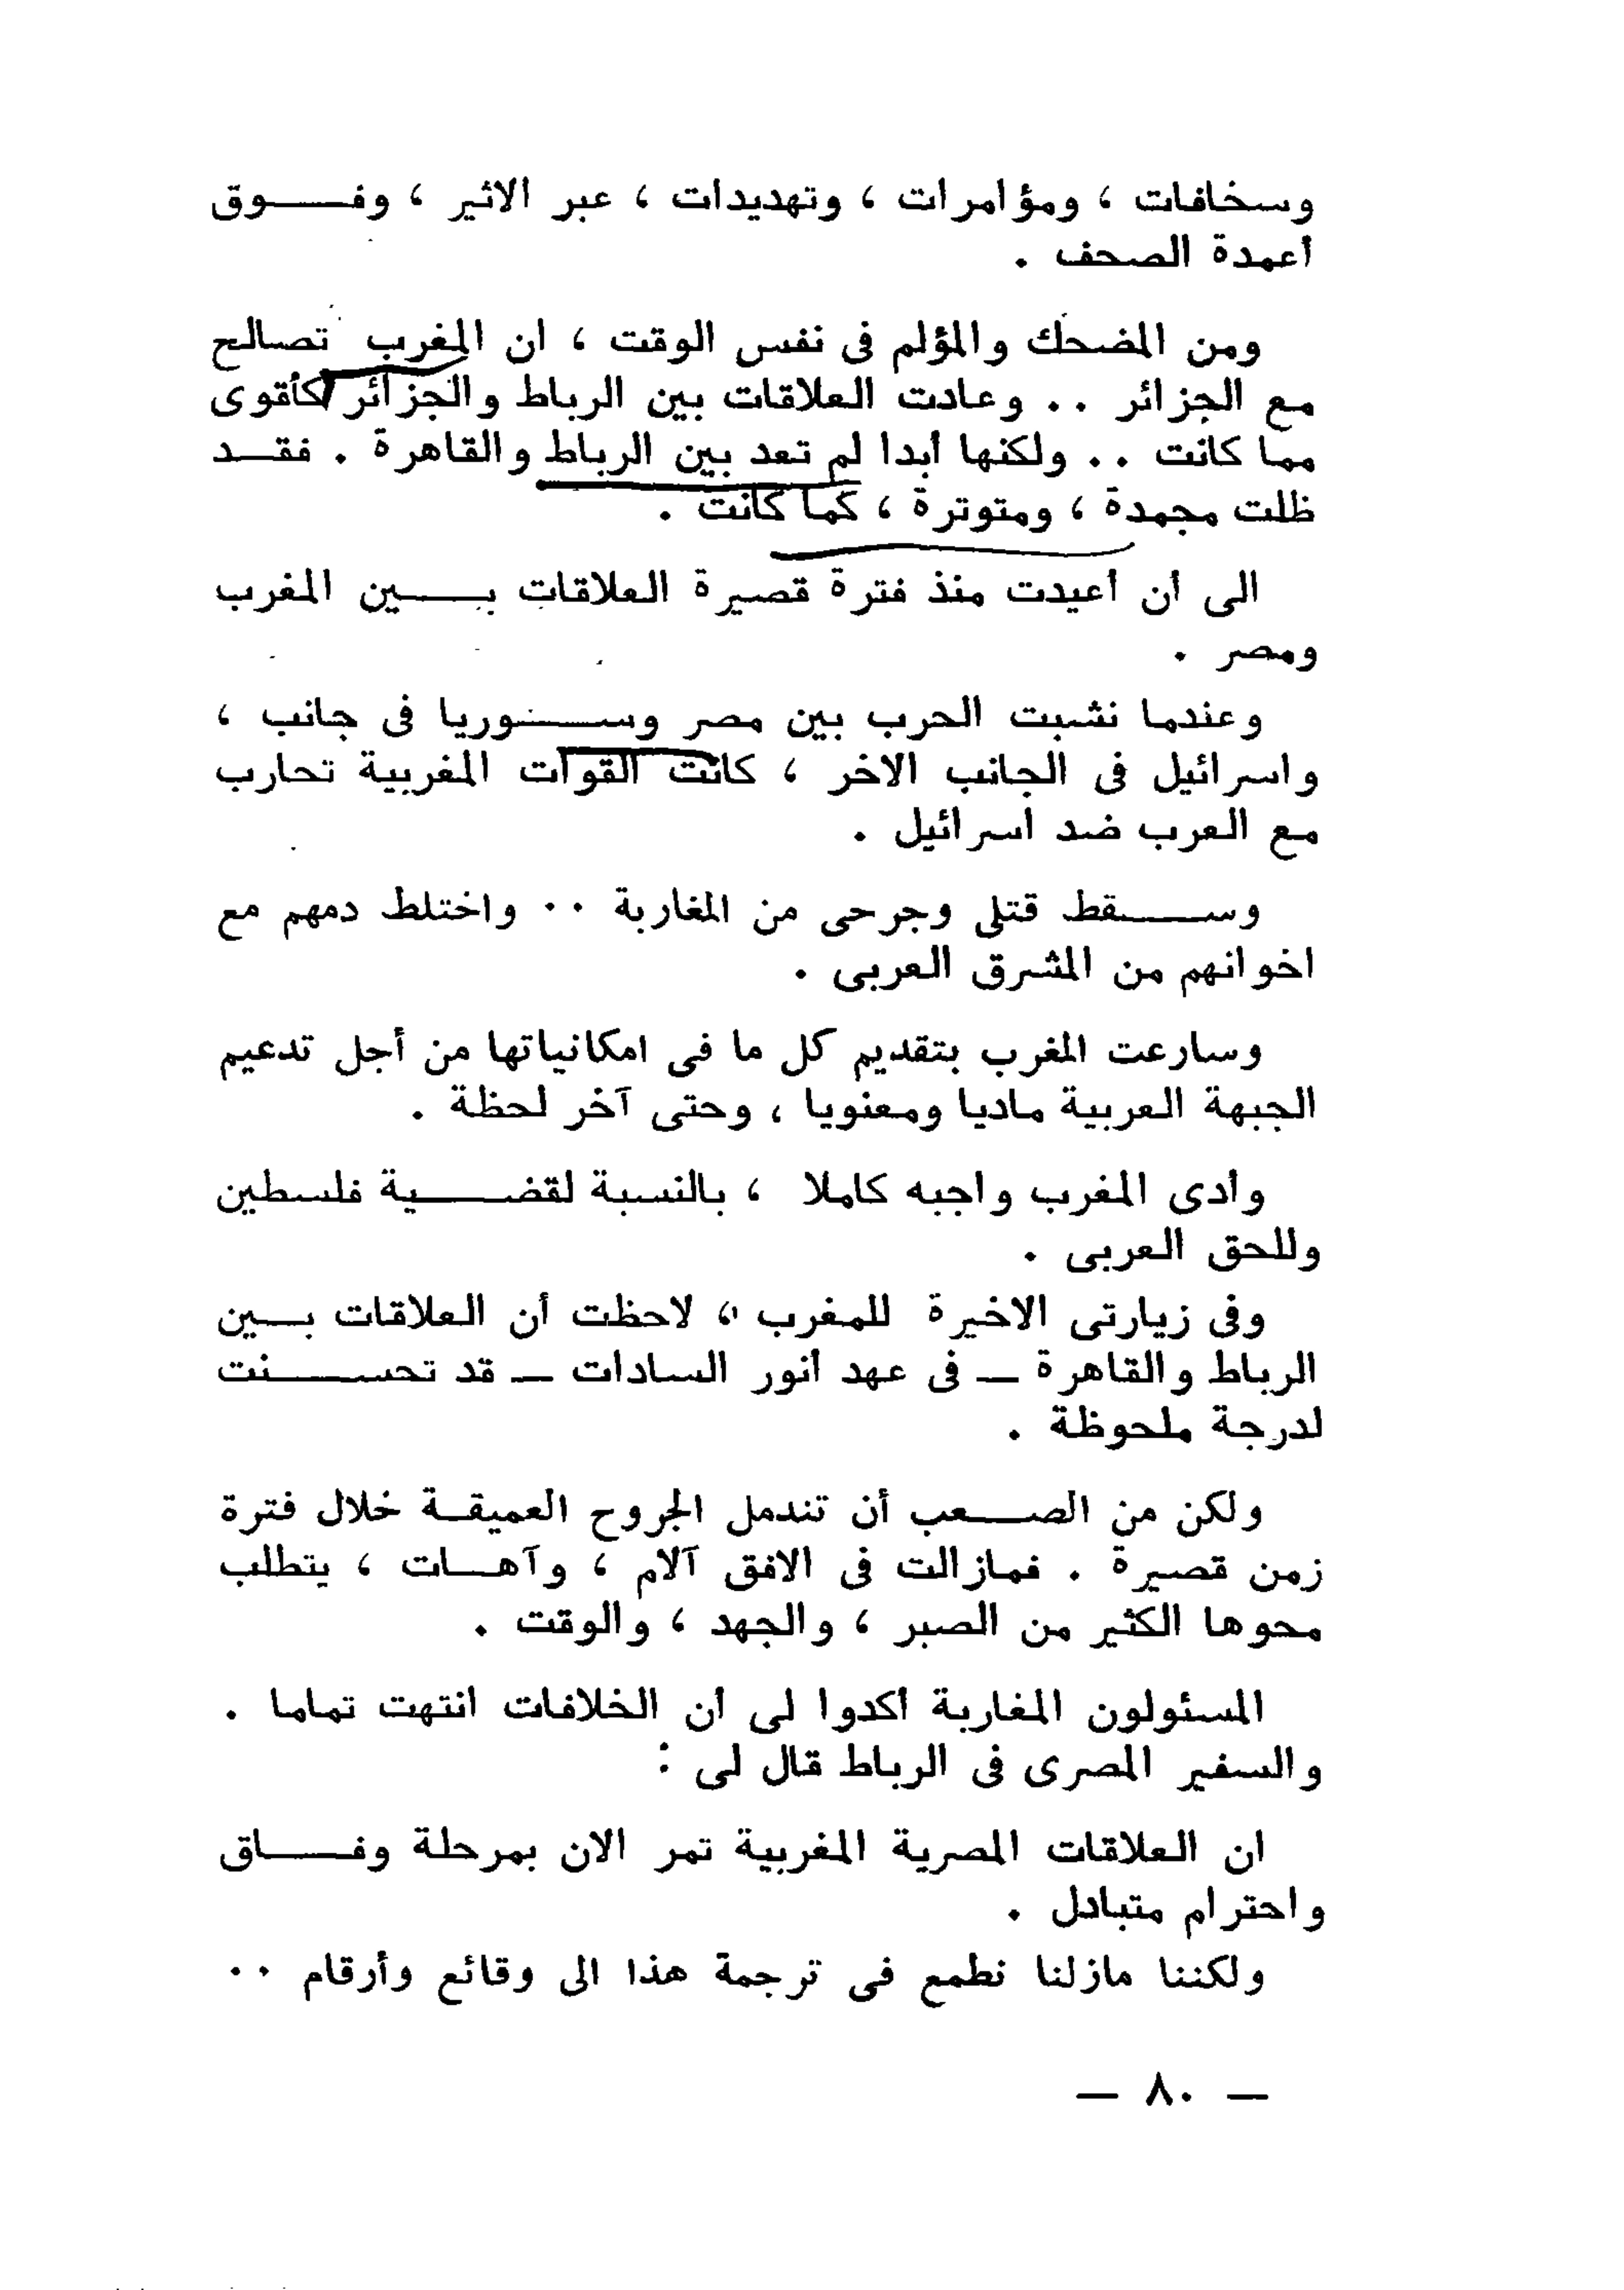 وسخافات ، ومؤامرات ، وتهديدات ، عبر الاثير ، وفوق
أعمدة الصحف .
ومن المضحك والمؤلم فى نفس الوقت ، ان المغرب تصالح
مع الجزائر .. وعادت العلاقات بين الرباط والجزائر كأقوى
مما كانت .. ولكنها أبدا لم تعد بين الرباط والقاهرة . فقد
ظلت مجمدة ، ومتوترة ، كما كانت .
الى أن أعيدت منذ فترة قصيرة العلاقات بين المغرب
ومصر .
وعندما نشبت الحرب بين مصر وسوريا فى جانب ،
واسرائيل فى الجانب الاخر ، كانت القوات المغربية تحارب
مع العرب ضد اسرائيل .
وسقط قتلى وجرحى من المغاربة .. واختلط دمهم مع
اخوانهم من المشرق العربى .
وسارعت المغرب بتقديم كل ما فى امكانياتها من أجل تدعيم
الجبهة العربية ماديا ومعنويا ، وحتى آخر لحظة .
وأدى المغرب واجبه كاملا ، بالنسبة لقضية فلسطين
وللحق العربى .
وفى زيارتى الاخيرة للمغرب ، لاحظت أن العلاقات بين
الرباط والقاهرة — فى عهد أنور السادات — قد تحسنت
لدرجة ملحوظة .
ولكن من الصعب أن تندمل الجروح العميقة خلال فترة
زمن قصيرة . فمازالت فى الافق آلام ، وآهات ، يتطلب
محوها الكثير من الصبر ، والجهد ، والوقت .
المسئولون المغاربة أكدوا لى أن الخلافات انتهت تماما .
والسفير المصرى فى الرباط قال لى :
ان العلاقات المصرية المغربية تمر الان بمرحلة وفاق
واحترام متبادل .
ولكننا مازلنا نطمع فى ترجمة هذا الى وقائع وأرقام ..
— ٨٠ —